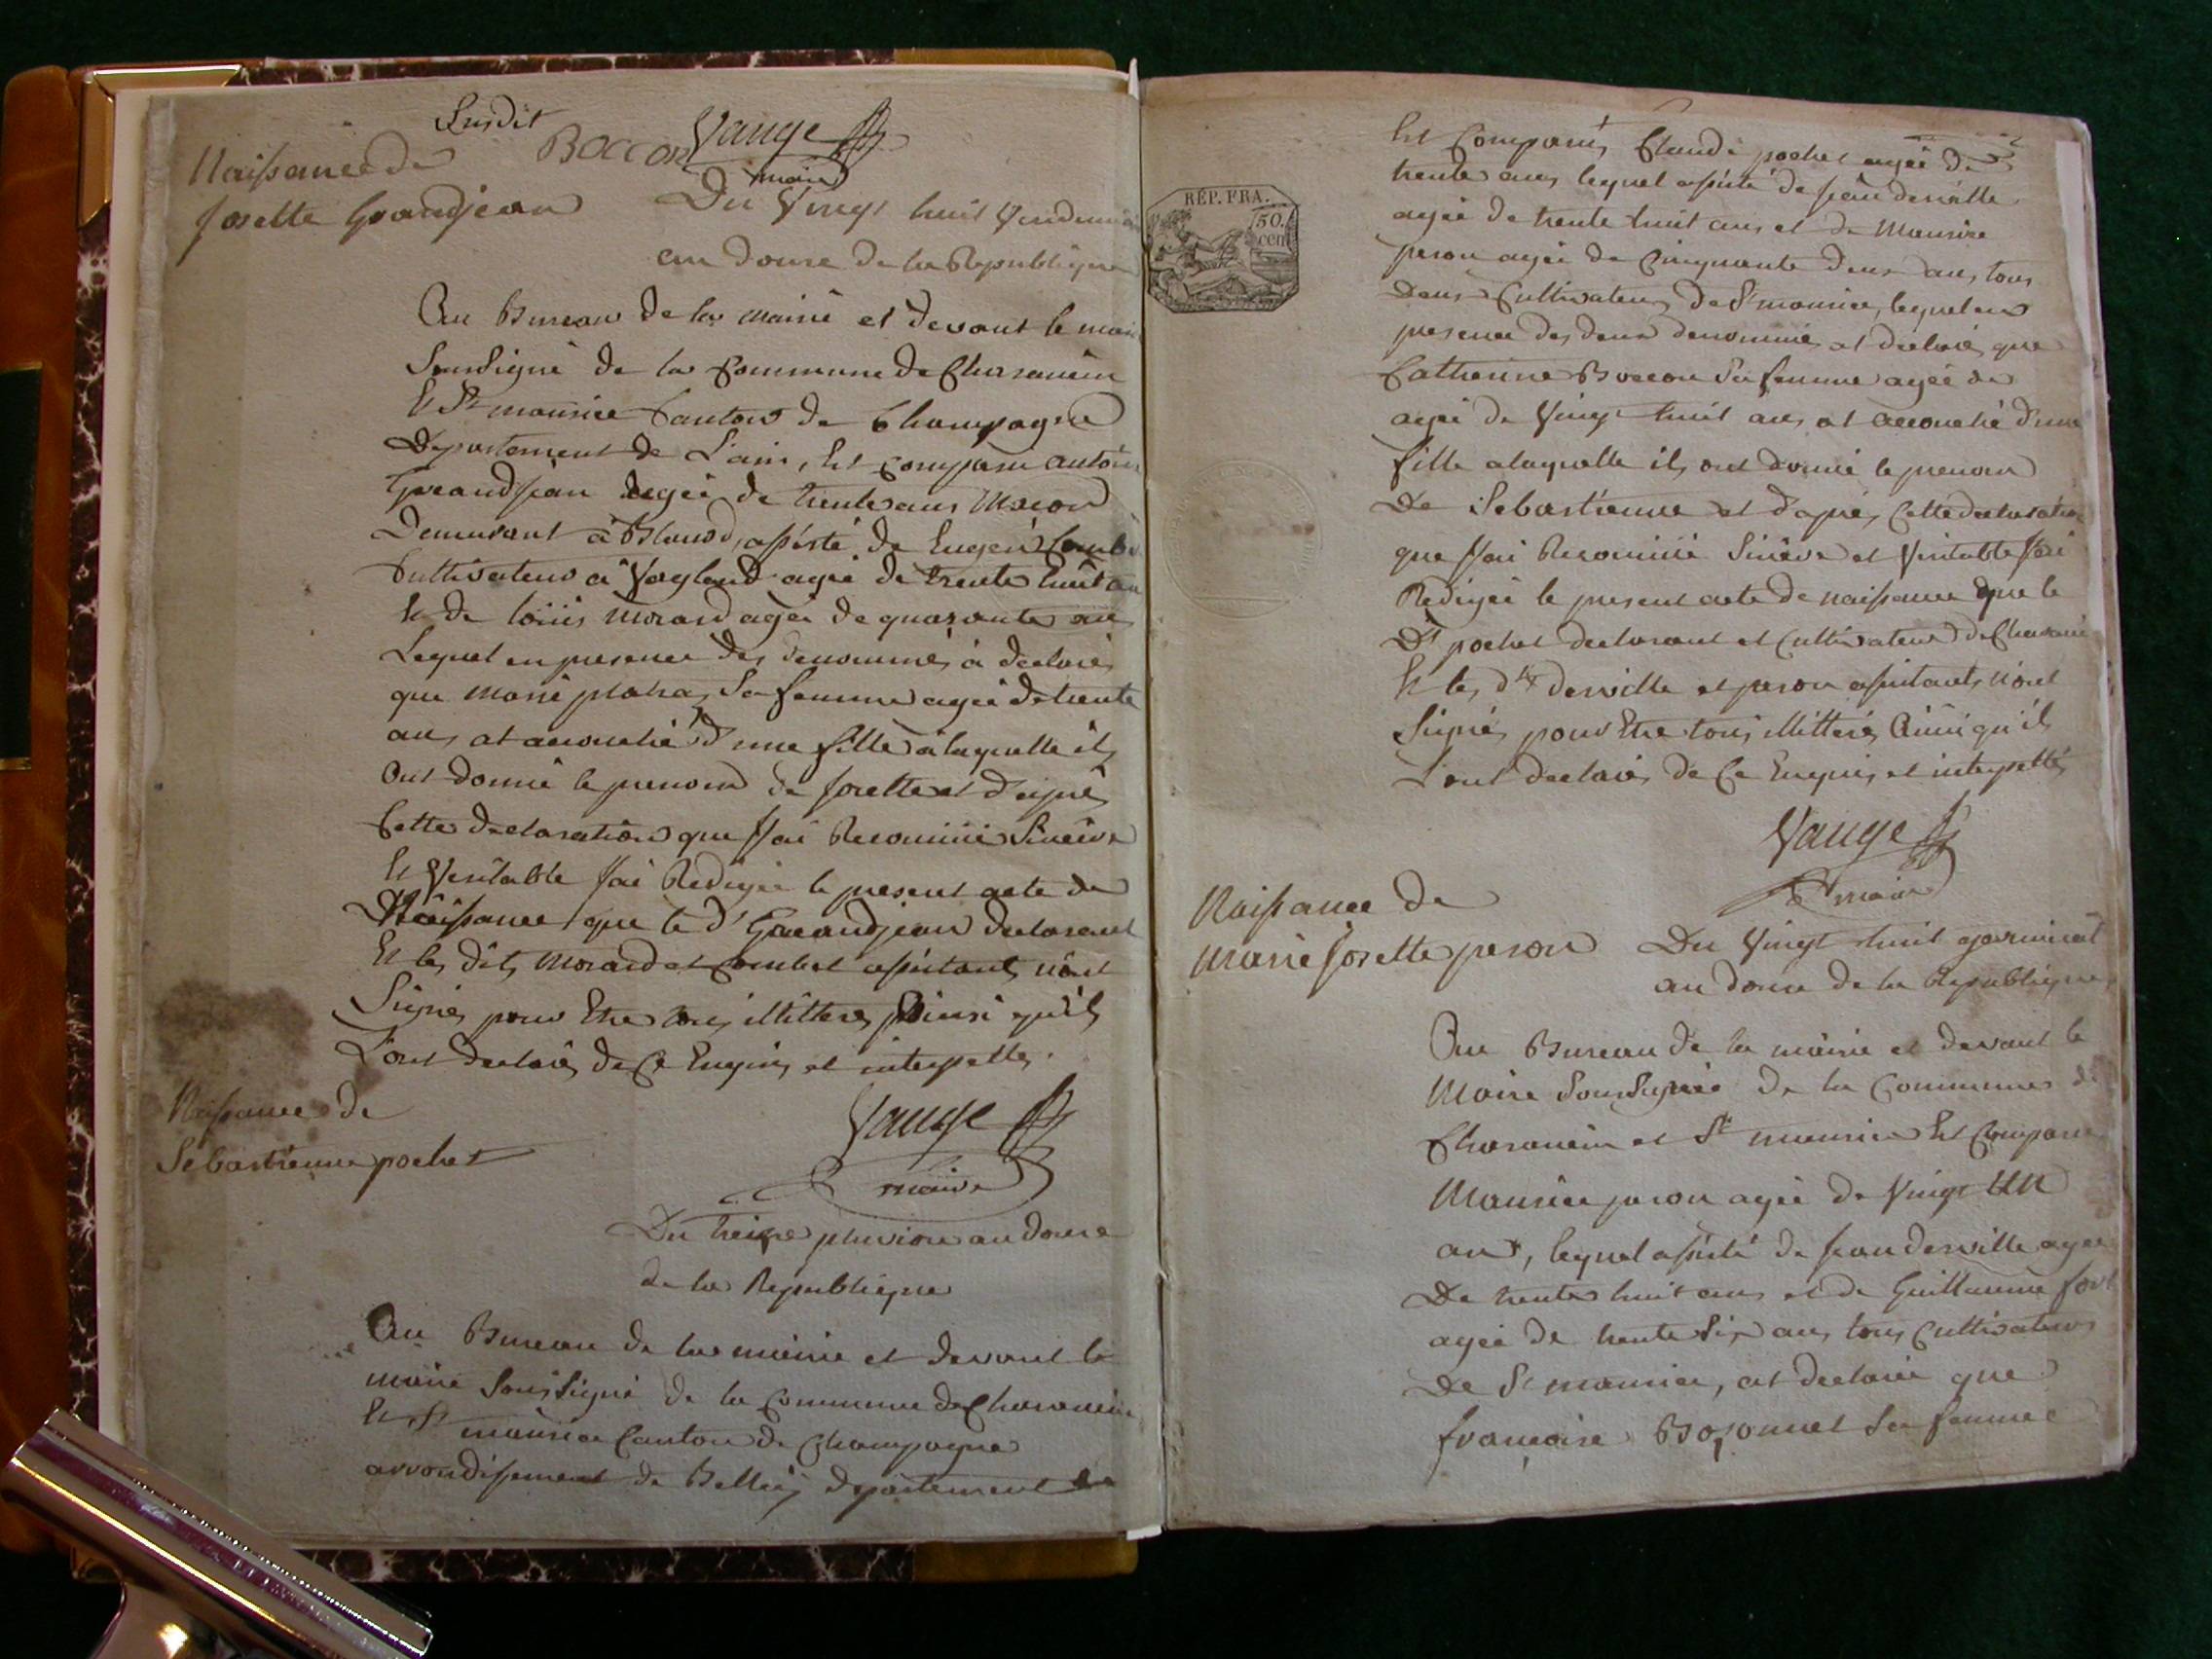 Susdit
BOCCON Vauge
maire
Naissance de
Josette Grandjean
Du Vingt huit Vendemi
an douze de la Republique
Au Bureau de la mairie et devant le mai
Soussigné de la Commune de Charancin
Et St maurice Canton de Champagne
Departement de L'ain, Est comparu antoin
Grandjean agée de trente ans Macon
Demeurant à Bland, assisté de Eugené
Cultivateur à Vogland agée de trente huit an
Et de loüis Morard agée de quarante ans
Lequel en presence des denommés à declaré
que Marie sa femme agée de trente
ans at accouché d'une fille à laquelle ils
Ont donné le prenom de Josette et d'apres
Cette declaration que J'ai Reconnüe Sincère
Et Veritable J'ai Redigée le present acte de
Naissance que le dt Grandjean declarant
Et les dits Morard et Combet assistants n'ont
Signés pour Etre tous illitterés Ainsi qu'ils
L'ont declarés de Ce Enquis et interpellés.
Vauge
maire
Naissance de
Sebastienne pochet
Du treize pluviose an douze
de la Republique
Au Bureau de la mairie et devant le
maire Soussigné de la Commune de Charancin
Et St maurice Canton de Champagne
arrondissement de Belley departement de
RÉP. FRA.
50.
cen
Est Comparus Claude pochet agée de
trente ans lequel assisté de Jean derville
agée de trente huit ans et de Maurice
peron agée de Cinquante deux ans, tous
deux Cultivateurs de St maurice, lequel en
presence des deux denommés at declaré que
Catherine Boccon Sa femme agée de
agée de Vingt huit ans at accouché d'une
fille a laquelle ils ont donné le prenom
De Sebastienne et d'apres Cette declaration
que J'ai Reconnüe Sincère et Veritable J'ai
Redigée le present acte de naissance que le
Dt pochet declarant et Cultivateur de Charancin
Et les dts derville et peron assistants n'ont
Signés pour Etre tous illitterés Ainsi qu'ils
L'ont declarés de Ce Enquis et interpellés
Vauge
maire
Naissance de
Marie Josette peron
Du Vingt huit germinal
an douze de la Republique
Au Bureau de la mairie et devant le
Maire Soussigné de la Commune de
Charancin et St maurice Est Comparu
Maurice peron agée de Vingt UN
ans, lequel assisté de Jean derville agée
De trente huit ans et de Guillaume
agée de trente Six ans tous Cultivateurs
De St maurice, at declaré que
françoise Bozonnet Sa femme